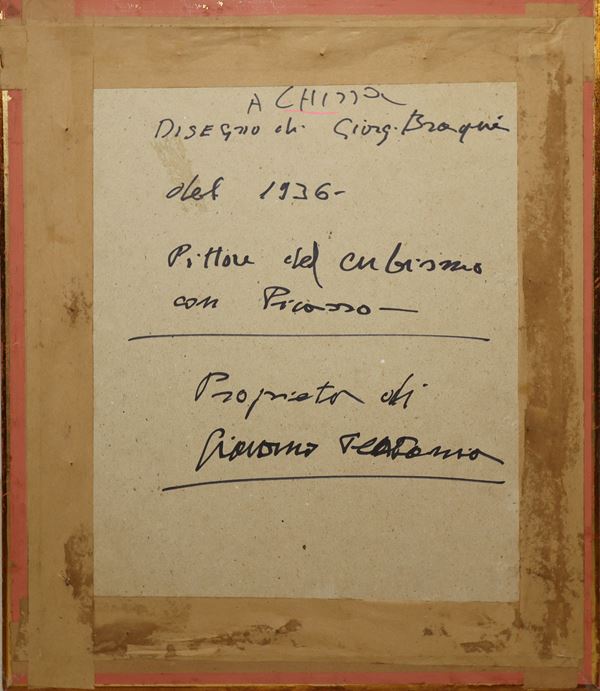 A CHINA
DISEGNO di Giorg. Braque
del 1936-
Pittore del cubismo
con Picasso
Proprieta di
Giacomo